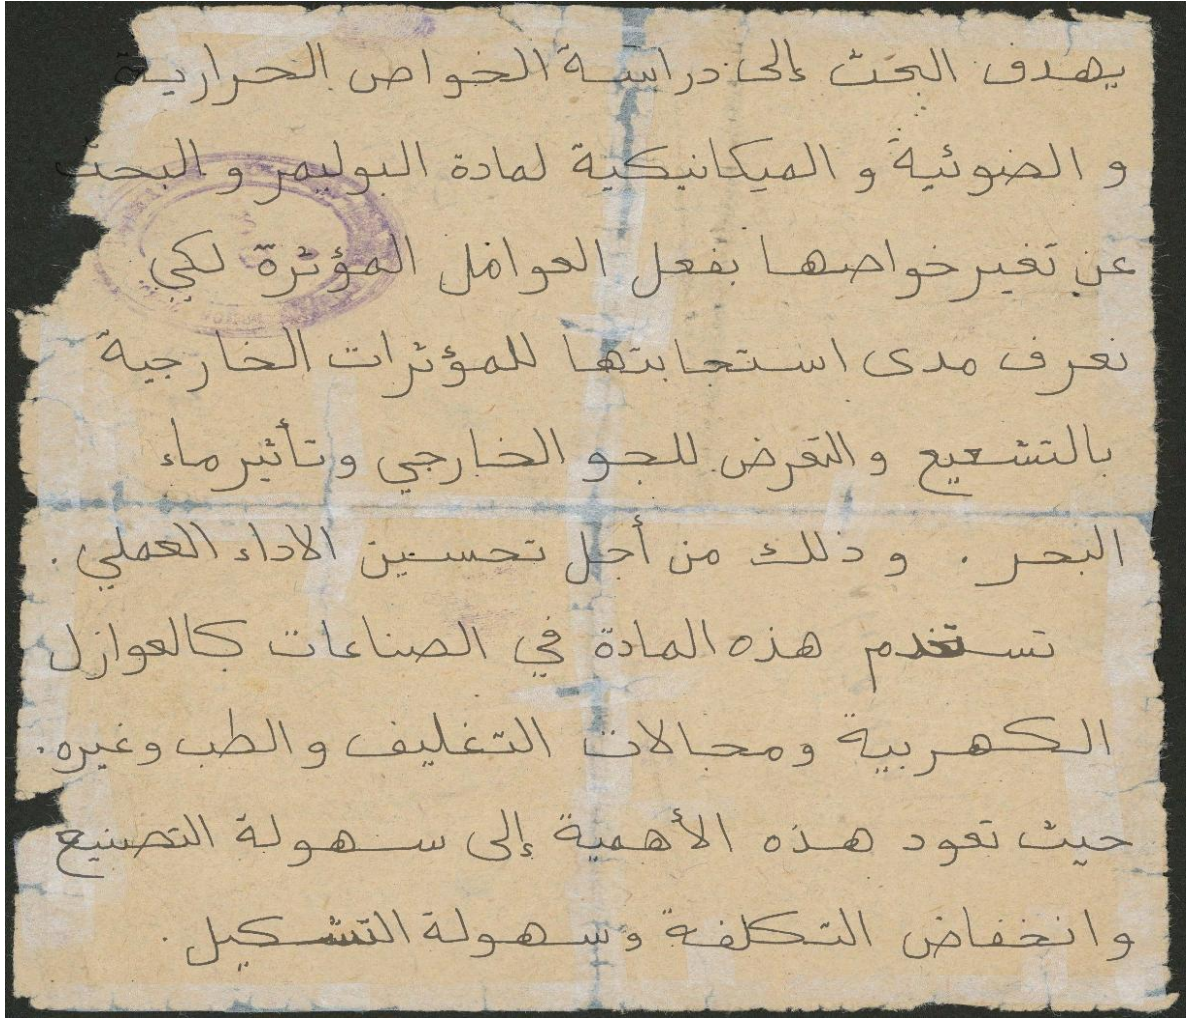 يهدف البحث إلى دراسة الخواص الحرارية
و الضوئية و الميكانيكية لمادة البوليمر و البحث
عن تغير خواصها بفعل العوامل المؤثرة لكي
نعرف مدى استجابتها للمؤثرات الخارجية
بالتشعيع والتعرض للجو الخارجي وتأثير ماء
البحر . وذلك من أجل تحسين الاداء العملي .
تستخدم هذه المادة في الصناعات كالعوازل
الكهربية ومجالات التغليف والطب وغيره.
حيث تعود هذه الأهمية إلى سهولة التصنيع
وانخفاض التكلفة وسهولة التشكيل .